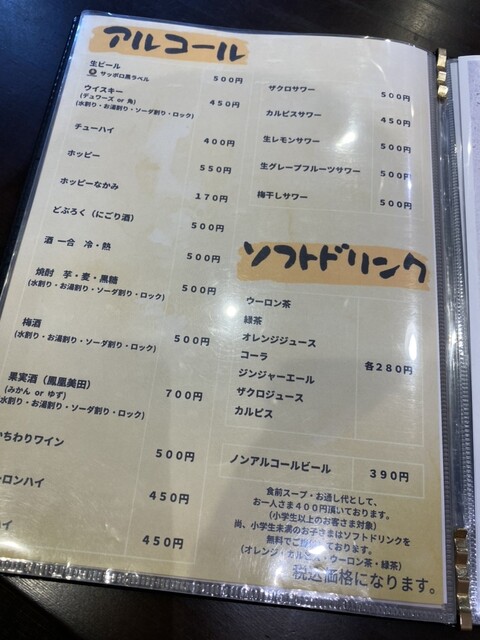 アルコール
生ビール
サッポロ黒ラベル 500円
ウイスキー
(デュワーズ or 角) 450円
(水割り・お湯割り・ソーダ割り・ロック)
チューハイ 400円
ホッピー 550円
ホッピーなかみ 170円
どぶろく(にごり酒) 500円
酒 一合 冷・熱 500円
焼酎 芋・麦・黒糖 500円
(水割り・お湯割り・ソーダ割り・ロック)
梅酒 500円
(水割り・お湯割り・ソーダ割り・ロック)
果実酒(鳳凰美田) 700円
(みかん or ゆず)
水割り・お湯割り・ソーダ割り・ロック)
ちわりワイン 500円
ロンハイ 450円
イ 450円
ザクロサワー 500円
カルピスサワー 450円
生レモンサワー 500円
生グレープフルーツサワー 500円
梅干しサワー 500円
ソフトドリンク
ウーロン茶
緑茶
オレンジジュース
コーラ 各280円
ジンジャーエール
ザクロジュース
カルピス
ノンアルコールビール 390円
食前スープ・お通し代として、
お一人さま400円頂いております。
(小学生以上のお客さま対象)
尚、小学生未満のお子さまはソフトドリンクを
無料でご提供しております。
(オレンジ・カルピス・ウーロン茶・緑茶)
税込価格になります。